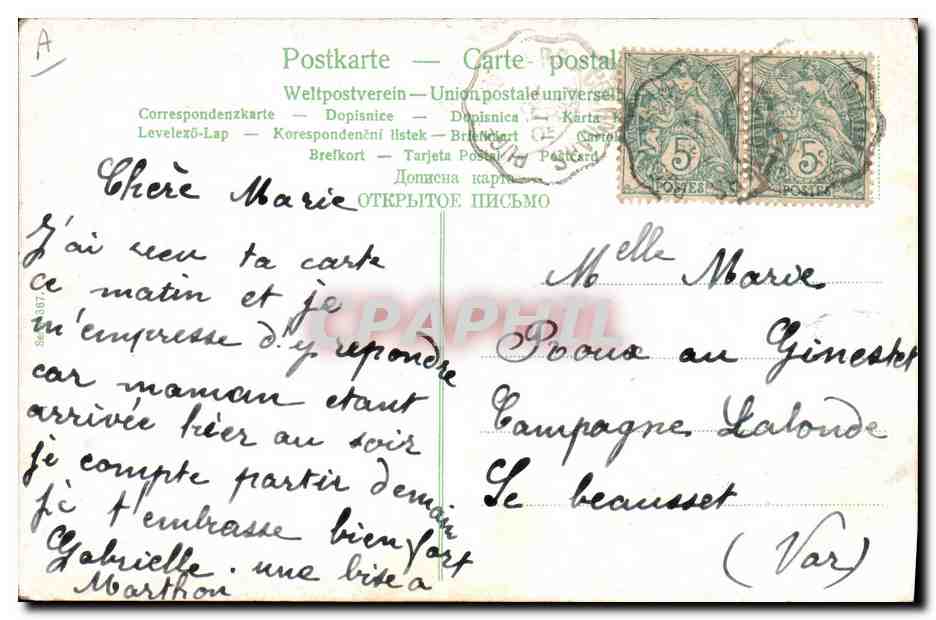 A
Postkarte — Carte postale
Weltpostverein — Union postale universelle
Correspondenzkarte - Dopisnice - Dopisnica - Karta
Levelező-Lap — Korespondenční lístek - Briefkaart
Brefkort — Tarjeta Postal Postcard
Дописна карта
ОТКРЫТОЕ ПИСЬМО
5c
POSTES
5c
POSTES
Chère Marie
J'ai recu ta carte
ce matin et je
m'empresse d'y repondre
car maman etant
arrivée hier au soir
je compte partir demain
je t'embrasse bien fort
Gabrielle. une bise a
Marthon
Melle Marie
au Ginestet
Campagne Lalonde
Le beausset
(Var)
CPAPHIL